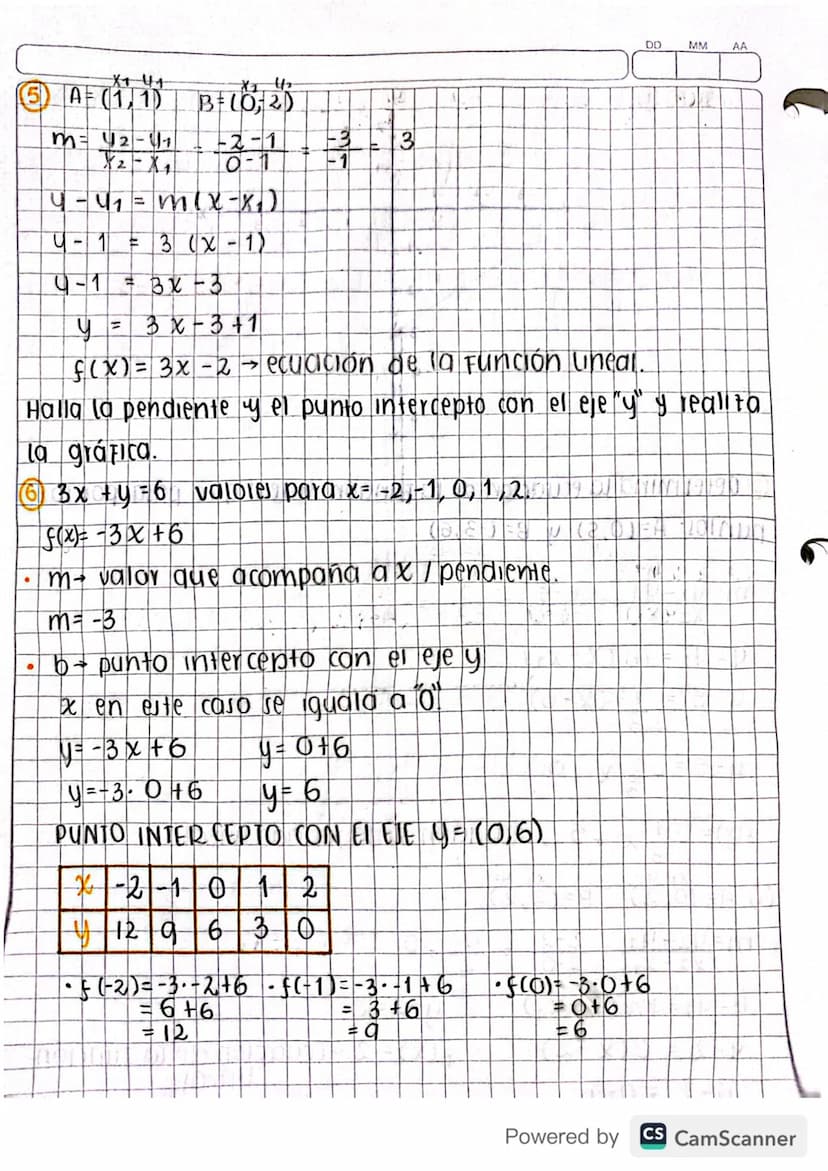 DD MM AA
x1 y1 x2 y2
⑤ A=(1,1) B=(0,-2)
m= y2-y1 / x2-x1 = -2-1 / 0-1 = -3 / -1 = 3
y-y1 = m(x-x1)
y-1 = 3 (x-1)
y-1 = 3x-3
y = 3x-3+1
f(x)= 3x-2 → ecuación de la función lineal.
Halla la pendiente y el punto intercepto con el eje "y" y realiza
la gráfica.
⑥ 3x+y=6 valores para x=-2,-1,0,1,2.
f(x)= -3x+6
• m→ valor que acompaña a x / pendiente.
m= -3
• b→ punto intercepto con el eje y
x en este caso se iguala a "0"
y= -3x+6 y= 0+6
y=-3·0+6 y= 6
PUNTO INTERCEPTO CON El EJE y=(0,6)
x -2 -1 0 1 2
y 12 9 6 3 0
·f(-2)=-3·-2+6 ·f(-1)=-3·-1+6 ·f(0)=-3·0+6
=6+6 = 3+6 =0+6
=12 =9 =6
Powered by CS CamScanner